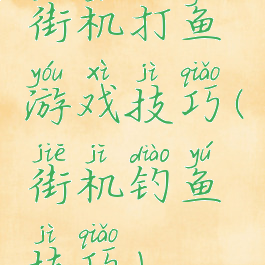 街机打鱼
yóu xì jì qiǎo
游戏技巧(
jiē jī diào yú
街机钓鱼
jì qiǎo
技巧)